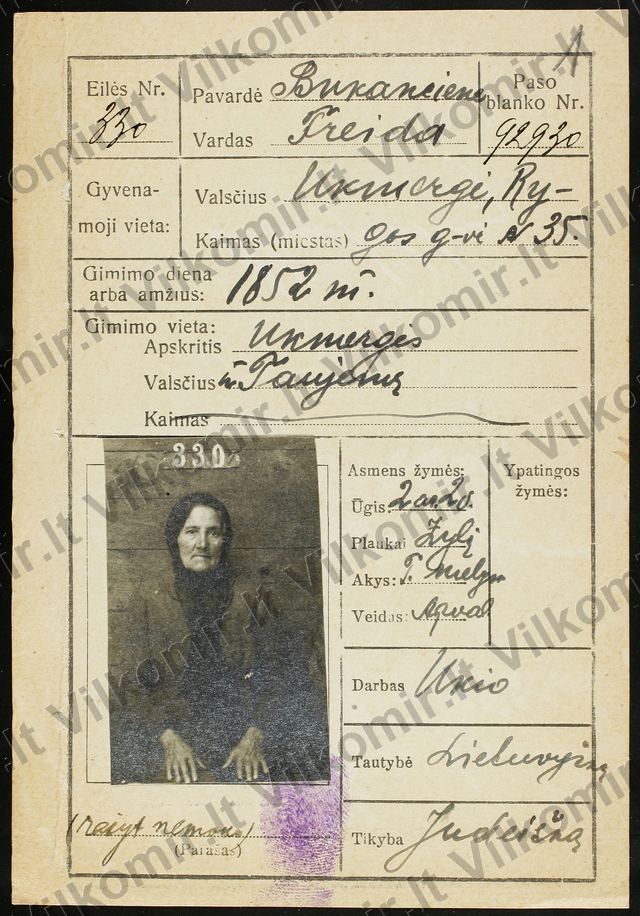 1
Eilės Nr.
330
Pavardė Bukancienė
Vardas Freida
Paso
blanko Nr.
92930
Gyvena-
moji vieta:
Valsčius Ukmergė, Ry-
Kaimas (miestas) gos g-vė N 35.
Gimimo diena
arba amžius: 1852 m.
Gimimo vieta:
Apskritis Ukmergės
Valsčius Taujėnų
Kaimas
330
Asmens žymės:
Ūgis 2 ar. 2 v.
Plaukai Žylį
Akys: T. mėlyn
Veidas: Apval
Ypatingos
žymės:
Darbas Ukio
Tautybė Lietuvyską
Tikyba Judeišką
(rašyt nemoka)
(Parašas)
Vilkomir.lt Vilkomir.lt Vilkomir.lt